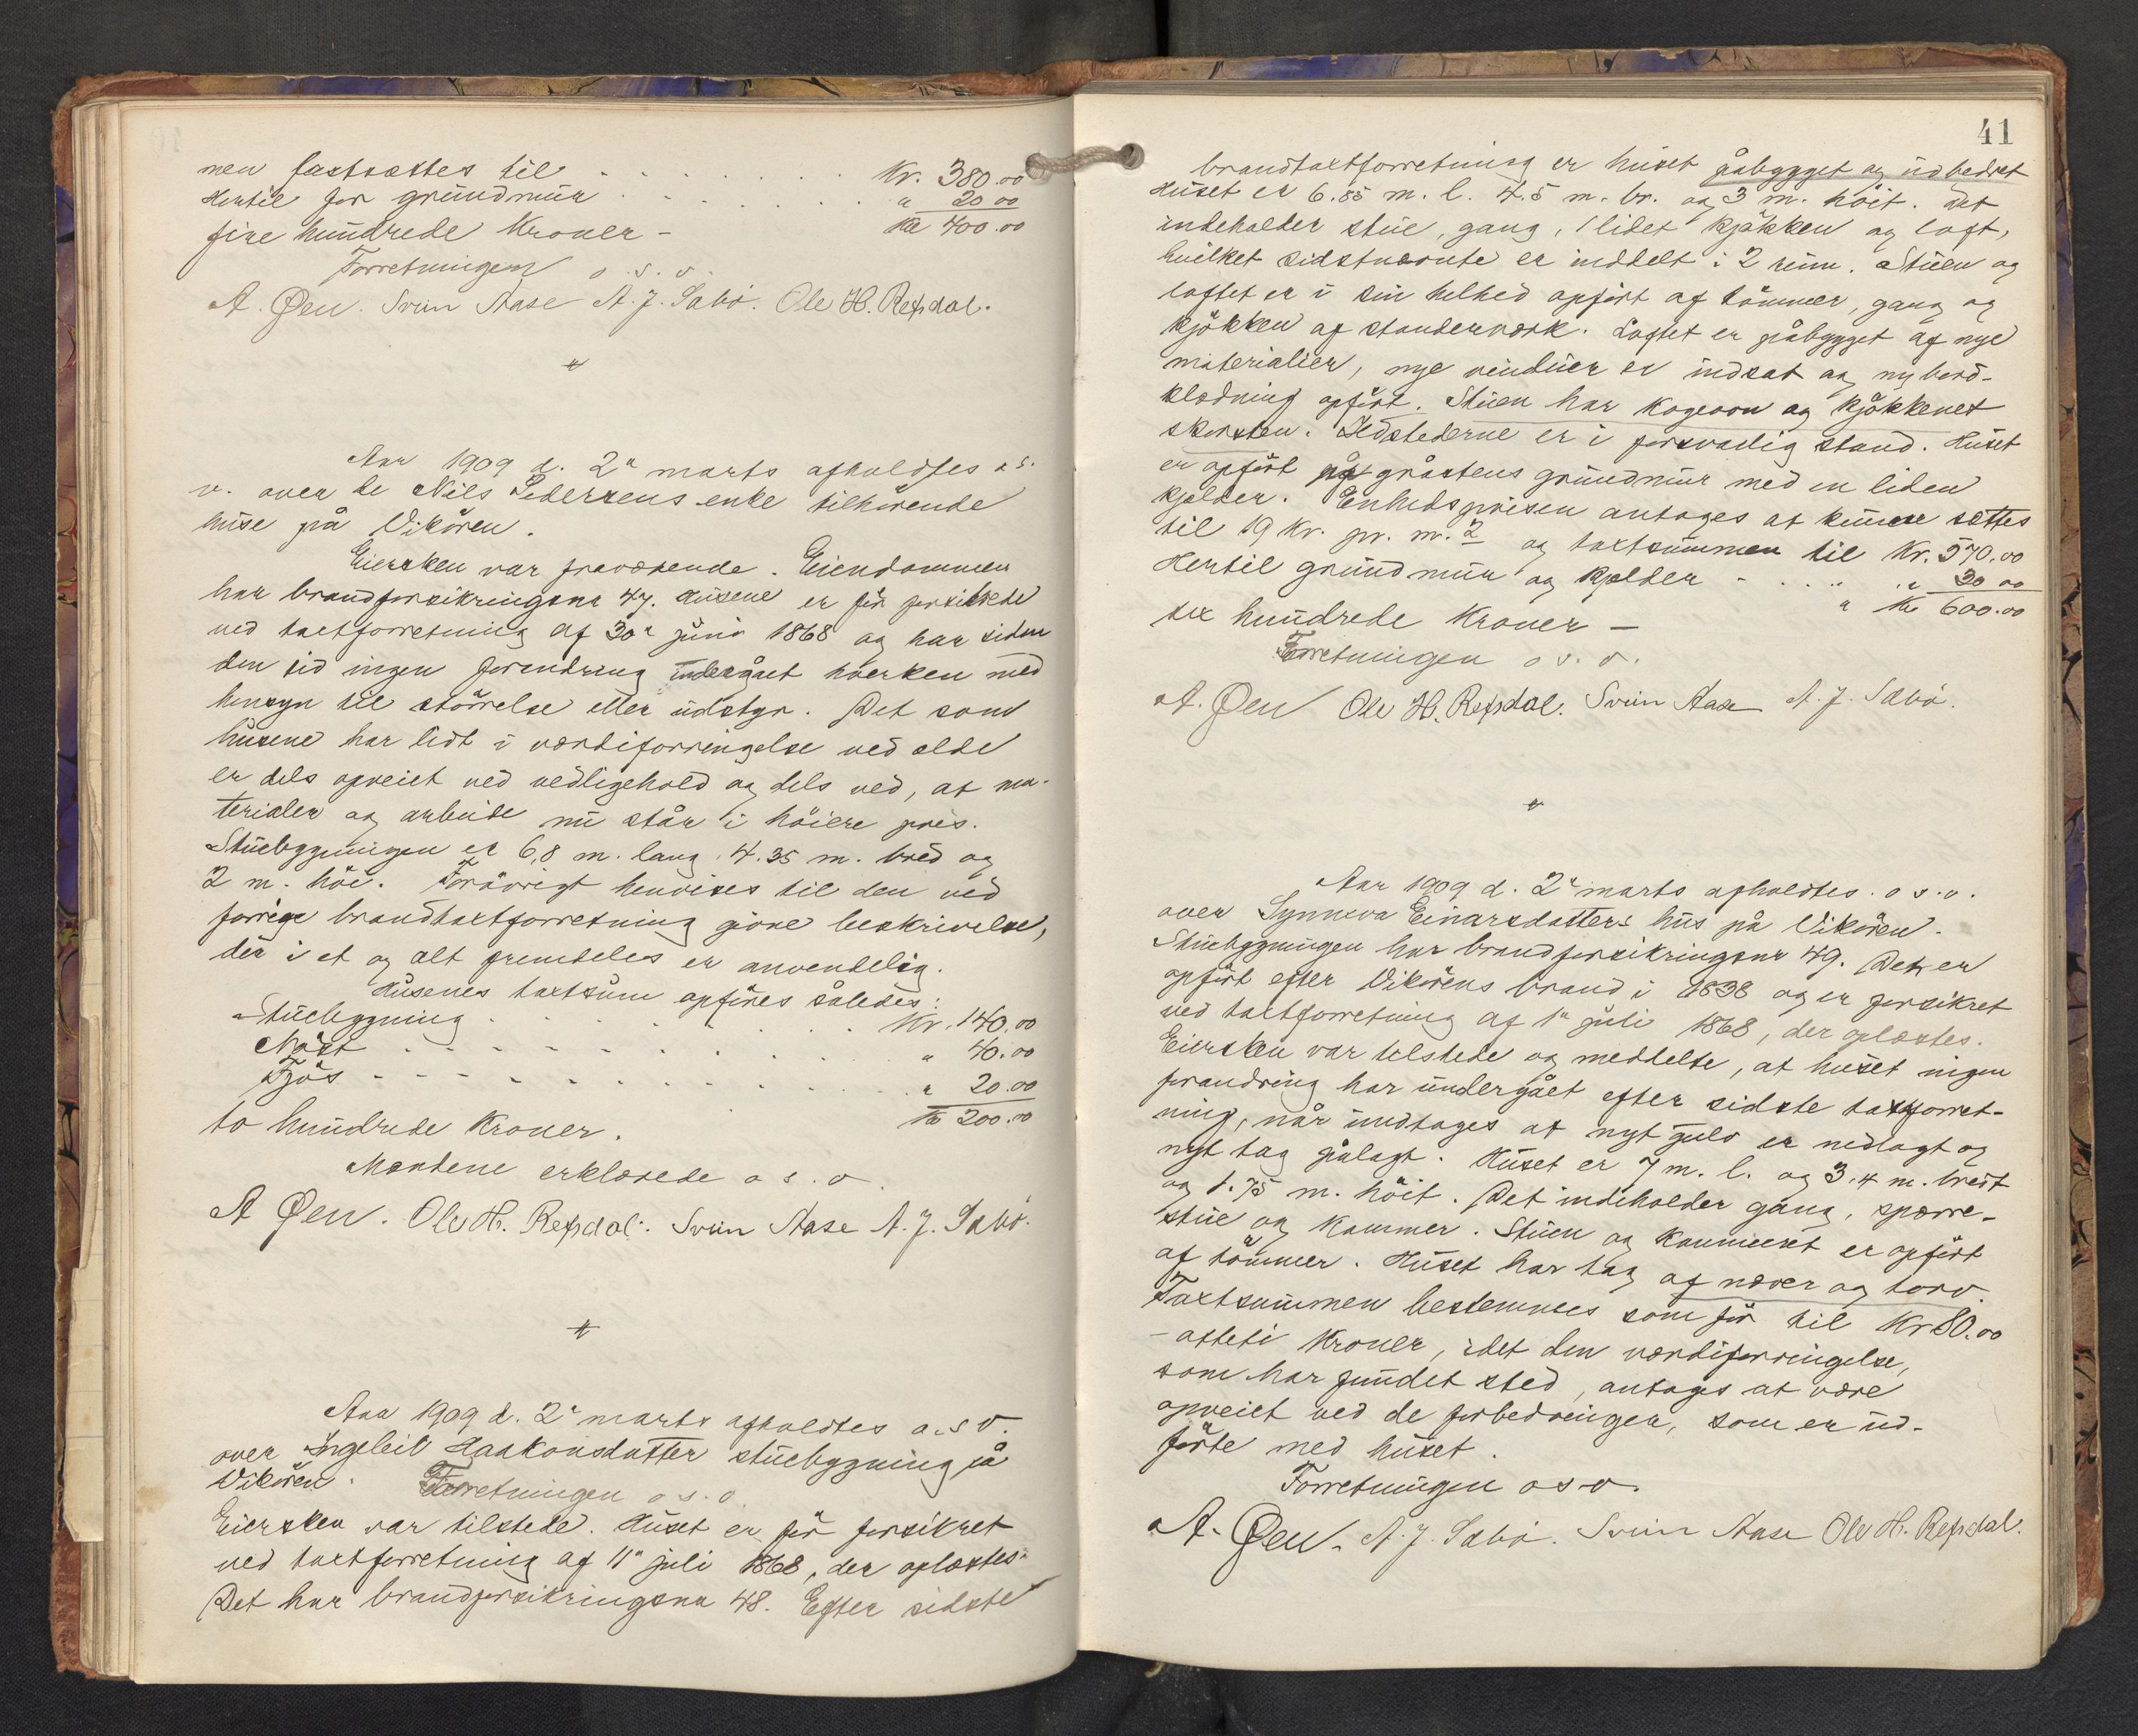 men fastsættes til . . . . . . . Kr. 380.00
Hertil for grundmur . . . . . . . " 20 00
fire hundrede Kroner – Kr 400.00
Forretningen o. s. v.
A. Øen. Svein Aase A. J. Sabø. Ole H. Refsdal.
Aar 1909 d. 2n marts afholdtes o s.
v. over de Nils Pedersens enke tilhørende
huse på Vikøren.
Eiersken var fraværende. Eiendommen
har brandforsikringsnr 47. Husene er før forsikrede
ved taxtforretning af 30n juni 1868 og har siden
den tid ingen forendring undergået hverken med
hensyn til størrelse eller udstyr. Det som
husene har lidt i værdiforringelse ved ælde
er dels opveiet ved vedligehold og dels ved, at ma-
terialer og arbeide nu står i høiere pris.
Stuebygningen er 6,8 m. lang. 4.35 m. bred og
2 m. høi. Forøvrigt henvises til den ved
forrige brandtaxtforretning givne beskrivelse,
der i et og alt fremdeles er anvendelig.
Husenes taxtsum opføres således:
Stuebygning . . . . . . . Kr. 140.00
Nøst . . . . . . . " 40.00
Fjøs . . . . . . . " 20.00
to hundrede Kroner. Kr 200.00
Mændene erklærede o s. v.
A Øen. Ole H. Refsdal. Svein Aase A. J. Sabø.
Aar 1909 d. 2n marts afholdtes o. s v.
over Ingeleiv Haakonsdatter stuebygning på
Vikøren. Forretningen o. s. v.
Eiersken var tilstede. Huset er før forsikret
ved taxtforretning af 11n juli 1868, der oplæstes.
Det har brandforsikringsnr 48. Efter sidste
41
brandtaxtforretning er huset påbygget og udbedret
Huset er 6.85 m. l. 4.5 m. br. og 3 m. høit. Det
indeholder stue, gang, 1 lidet kjøkken og loft,
hvilket sidstnævnte er inddelt i 2 rum. Stuen og
loftet er i sin helhed opført af tømmer, gang og
kjøkken af standerværk. Loftet er påbygget af nye
materialier, nye vinduer er indsat og ny bord-
klædning opført. Stuen har kogeovn og kjøkkenet
skorsten. Ildstederne er i forsvarlig stand. Huset
er opført på gråstens grundmur med en liden
kjelder. Enhedsprisen antages at kunne sættes
til 19 kr. pr. m.2 og taxtsummen til Kr. 570.00
Hertil grundmur og kjelder - . . . " 30 00
sex hundrede Kroner – " Kr 600.00
Forretningen o s. v.
A. Øen Ole H. Refsdal. Svein Aase A. J. Sabø.
Aar 1909 d. 2n marts afholdtes. o s. v.
over Synneva Einarsdatters hus på Vikøren.
Stuebygningen har brandforsikringsnr 49. Det er
opført efter Vikørens brand i 1838 og er forsikret
ved taxtforretning af 1n juli 1868, der oplæstes.
Eiersken var tilstede og meddelte, at huset ingen
forandring har undergået efter sidste taxtforret-
ning, når undtages at nyt gulv er nedlagt og
nyt tag pålagt. Huset er 7 m. l. og 3.4 m. bredt
og 1.75 m. høit. Det indeholder gang, sperre-
stue og kammer. Stuen og kammeret er opført
af tømmer. Huset har tag af never og torv.
Taxtsummen bestemmes som før til Kr 80.00
– otteti Kroner, idet den værdiforringelse,
som har fundet sted, antages at være
opveiet ved de forbedringer, som er ud-
førte med huset.
Forretningen o s v.
A. Øen. A. J. Sabø. Svein Aase Ole H. Refsdal.